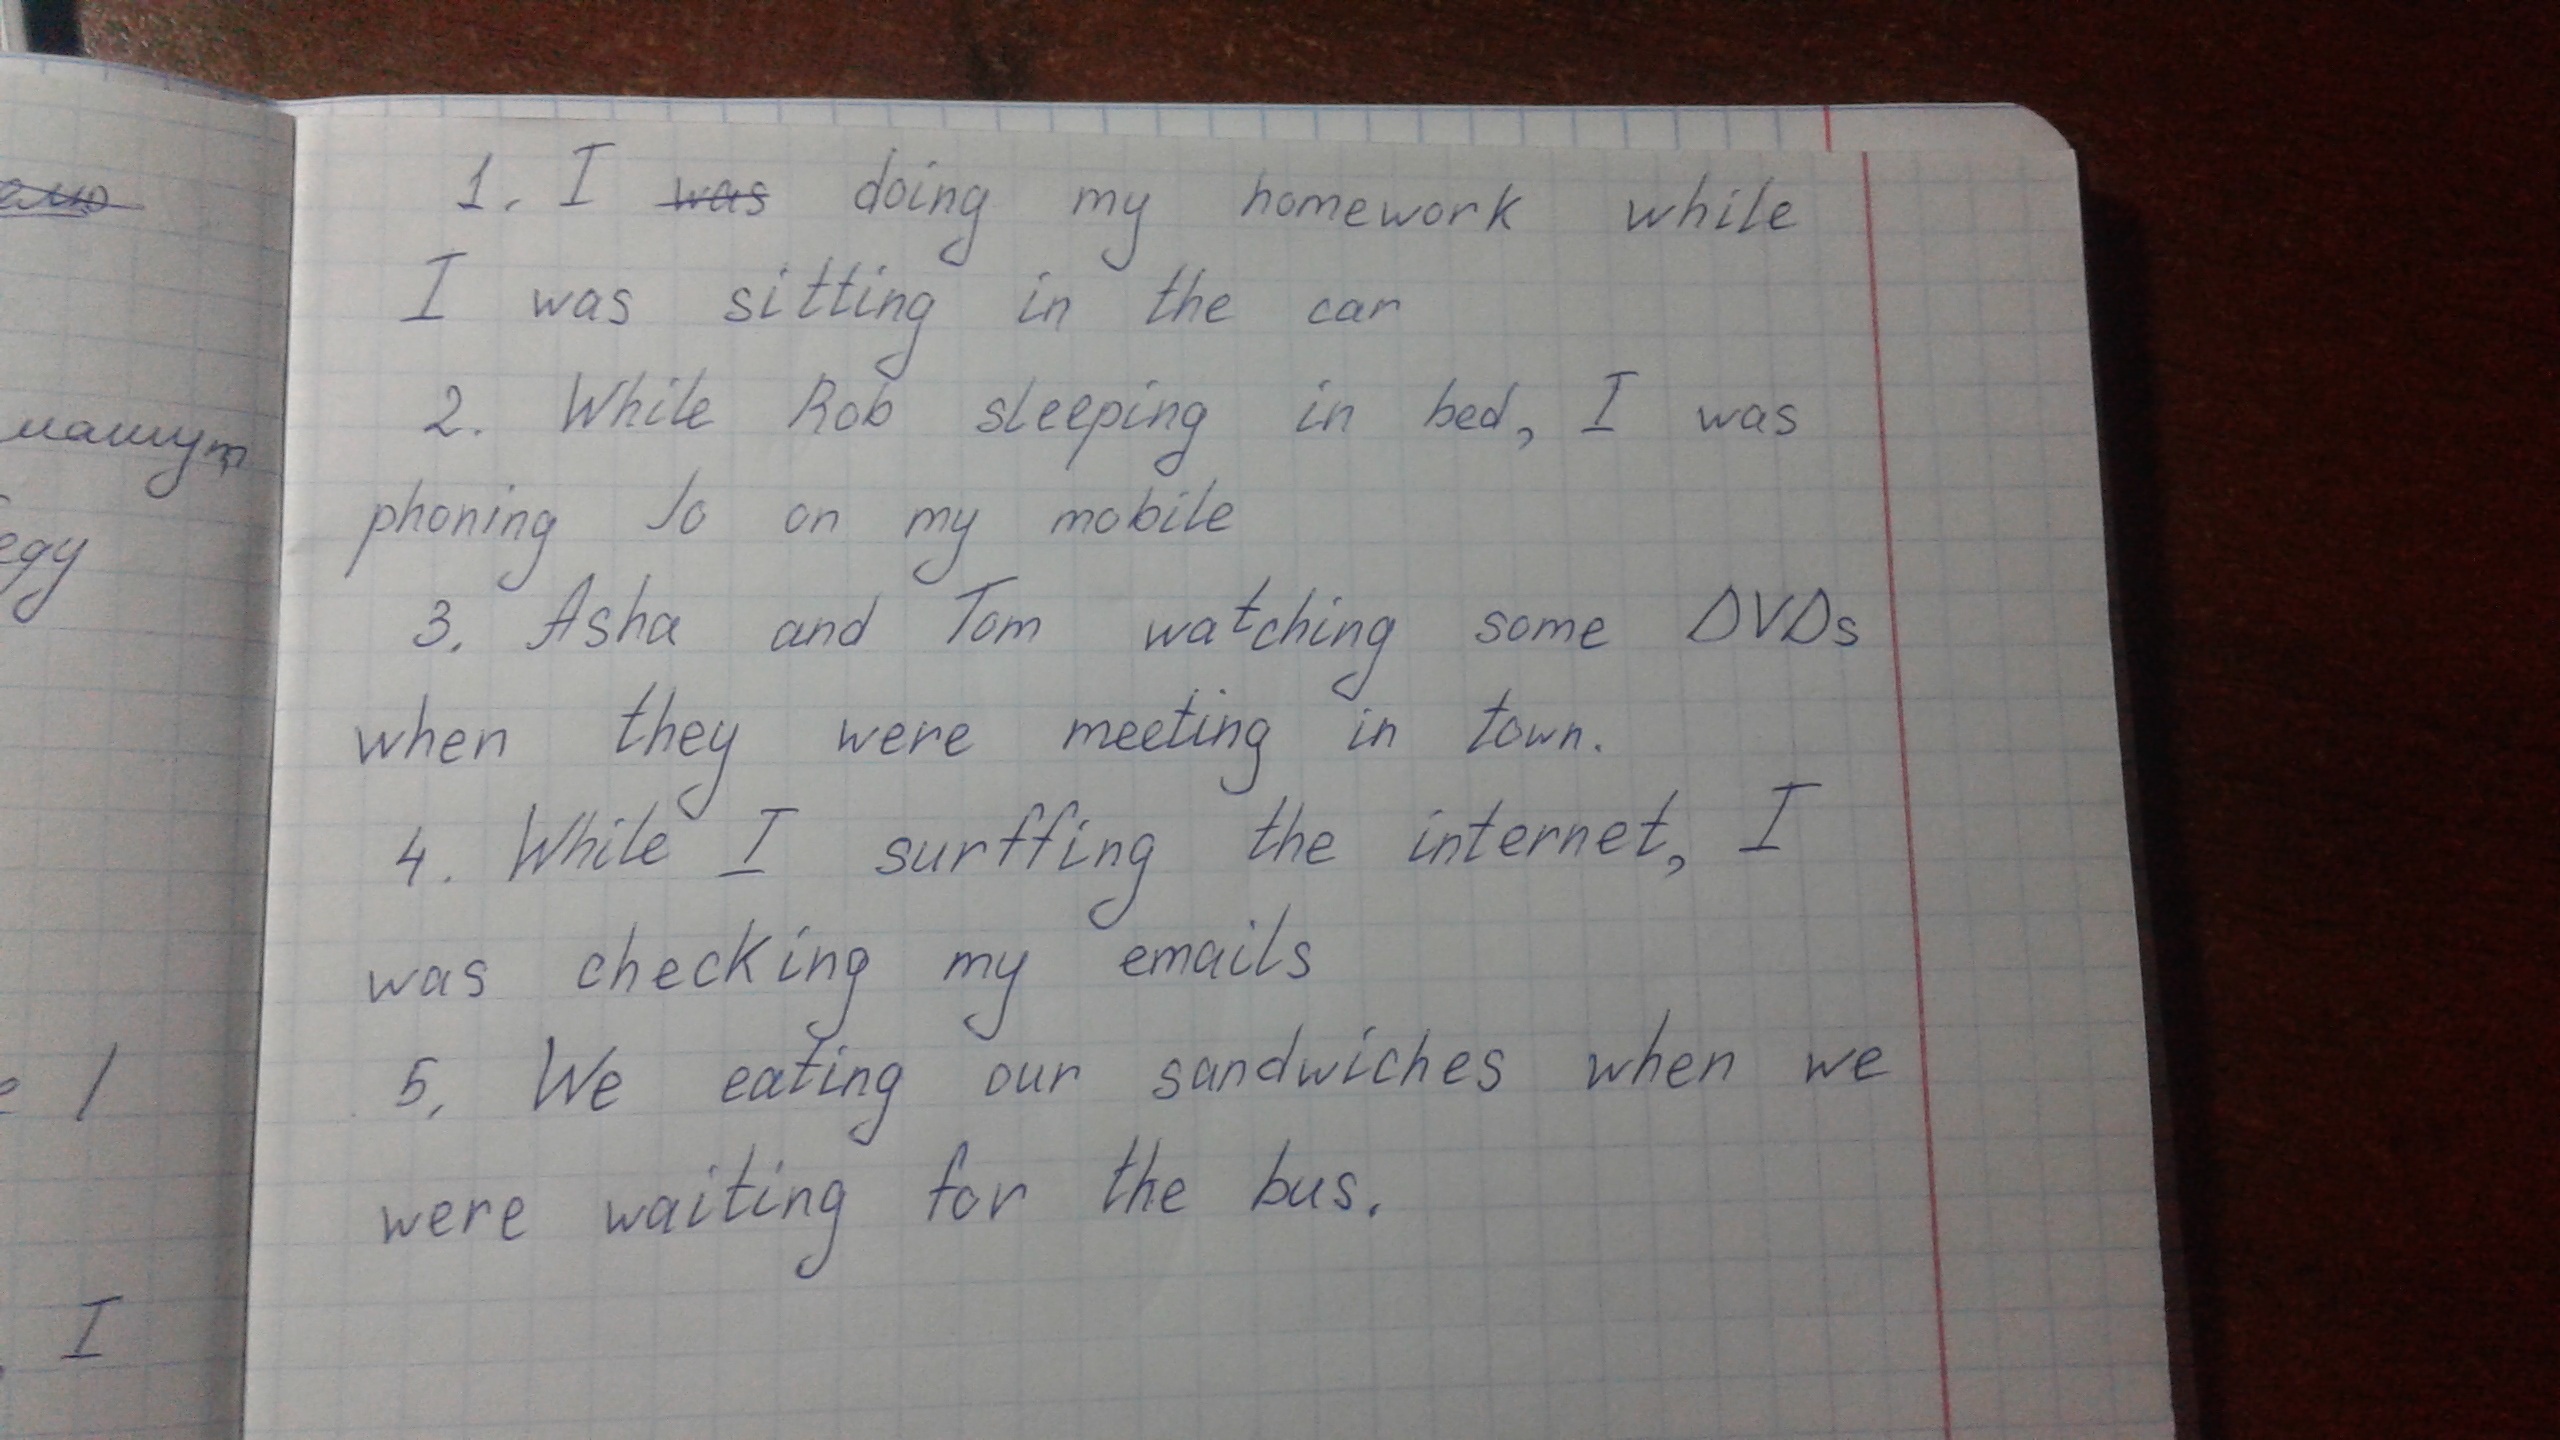 1. I was doing my homework while
I was sitting in the car
2. While Rob sleeping in bed, I was
phoning Jo on my mobile
3. Asha and Tom watching some DVDs
when they were meeting in town.
4. While I surffing the internet, I
was checking my emails
5. We eating our sandwiches when we
were waiting for the bus.
I